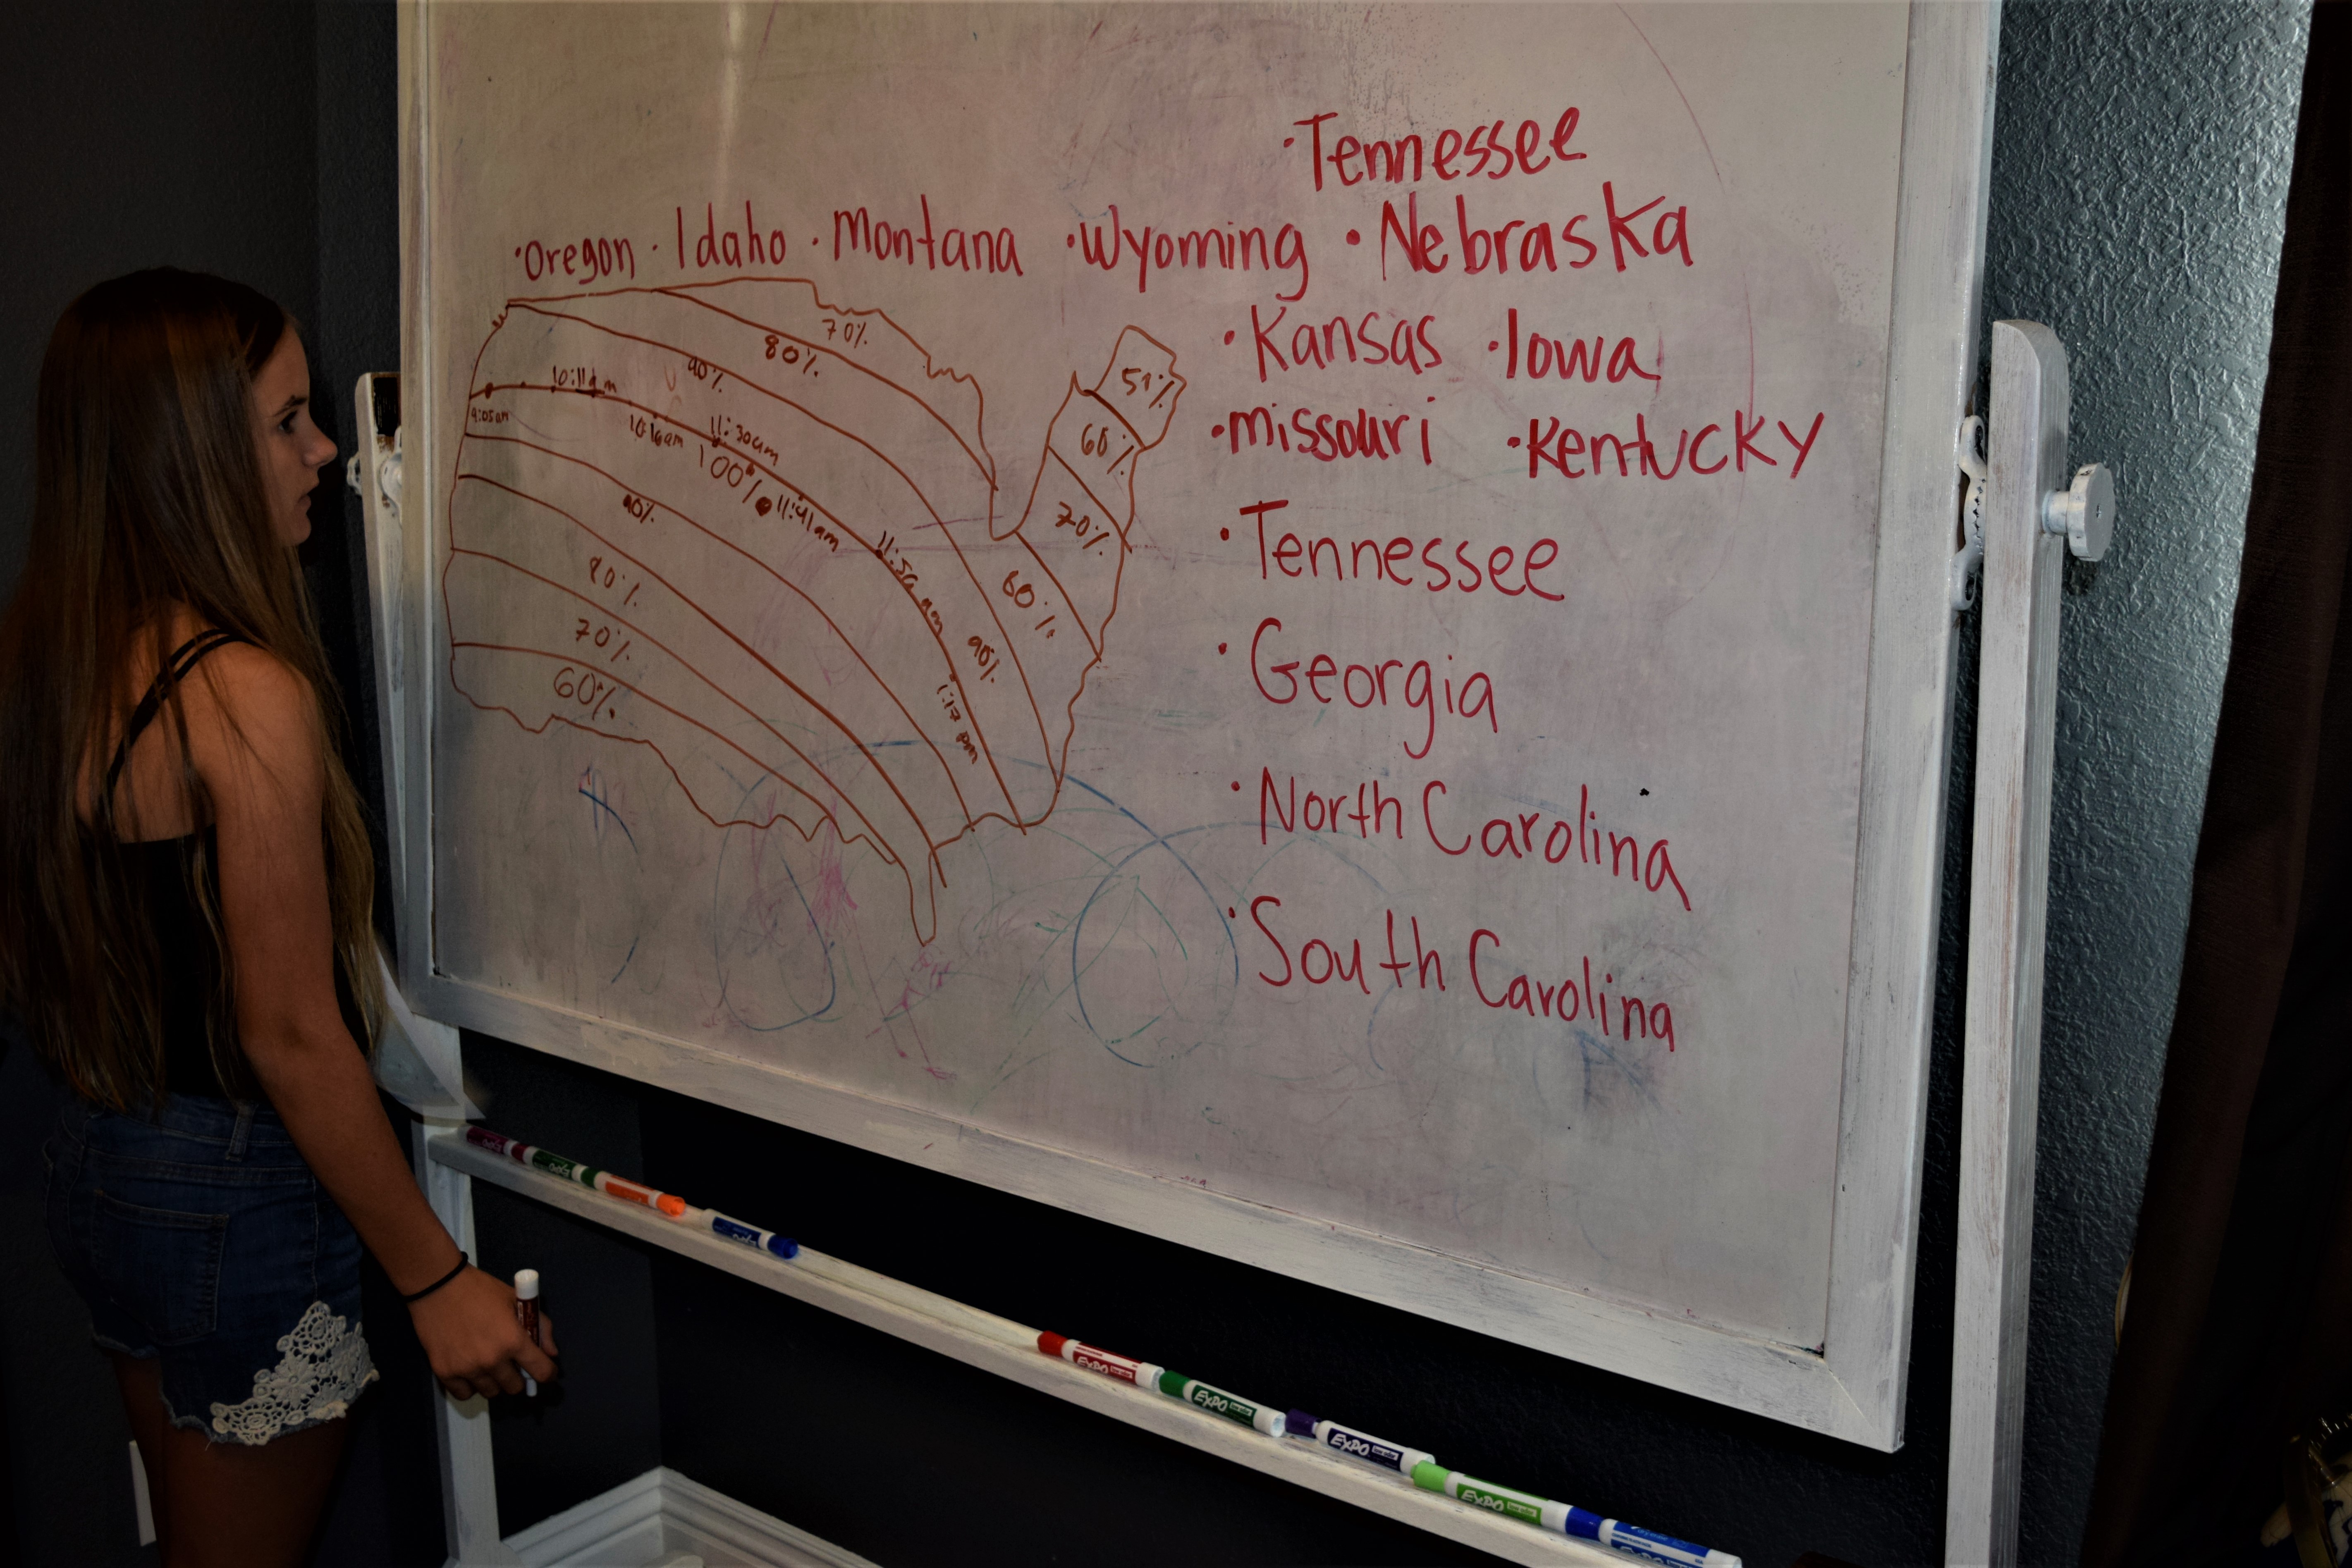 · Tennessee
· Oregon · Idaho · Montana · Wyoming · Nebraska
· Kansas · Iowa
· Missouri · Kentucky
· Tennessee
· Georgia
· North Carolina
· South Carolina
70%
80%
90%
10:11am
9:05am
10:16am
11:30am
100%
11:41am
90%
80%
70%
60%
90%
1:17 pm
51%
60%
70%
EXPO
EXPO
EXPO
EXPO
EXPO